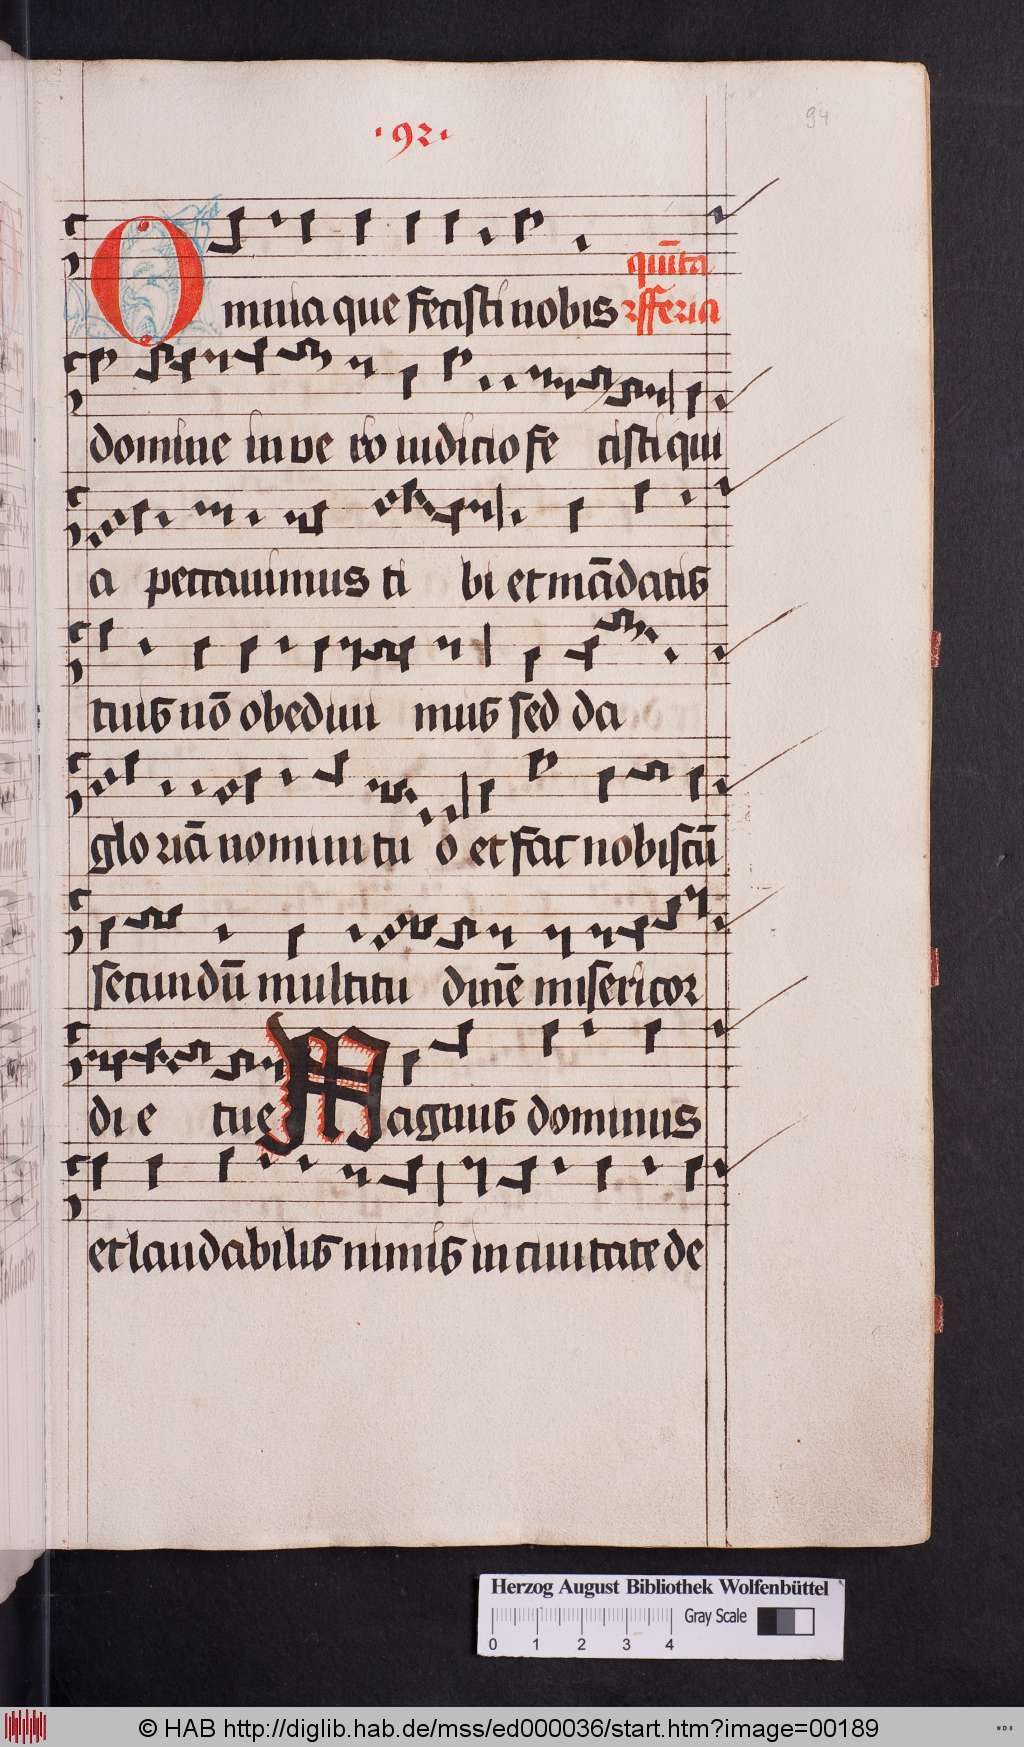 ·92·
94
Omnia que fecisti nobis
quīta
rfferia
domine in ve ro iudicio fe cisti qui
a peccavimus ti bi et mādatis
tuis nō obedivi mus sed da
gloriā nomini tu o et fac nobiscū
secundū multitu dinē misericor
di e tue Magnus dominus
et laudabilis nimis in civitate de
Herzog August Bibliothek Wolfenbüttel
Gray Scale
0 1 2 3 4
© HAB http://diglib.hab.de/mss/ed000036/start.htm?image=00189